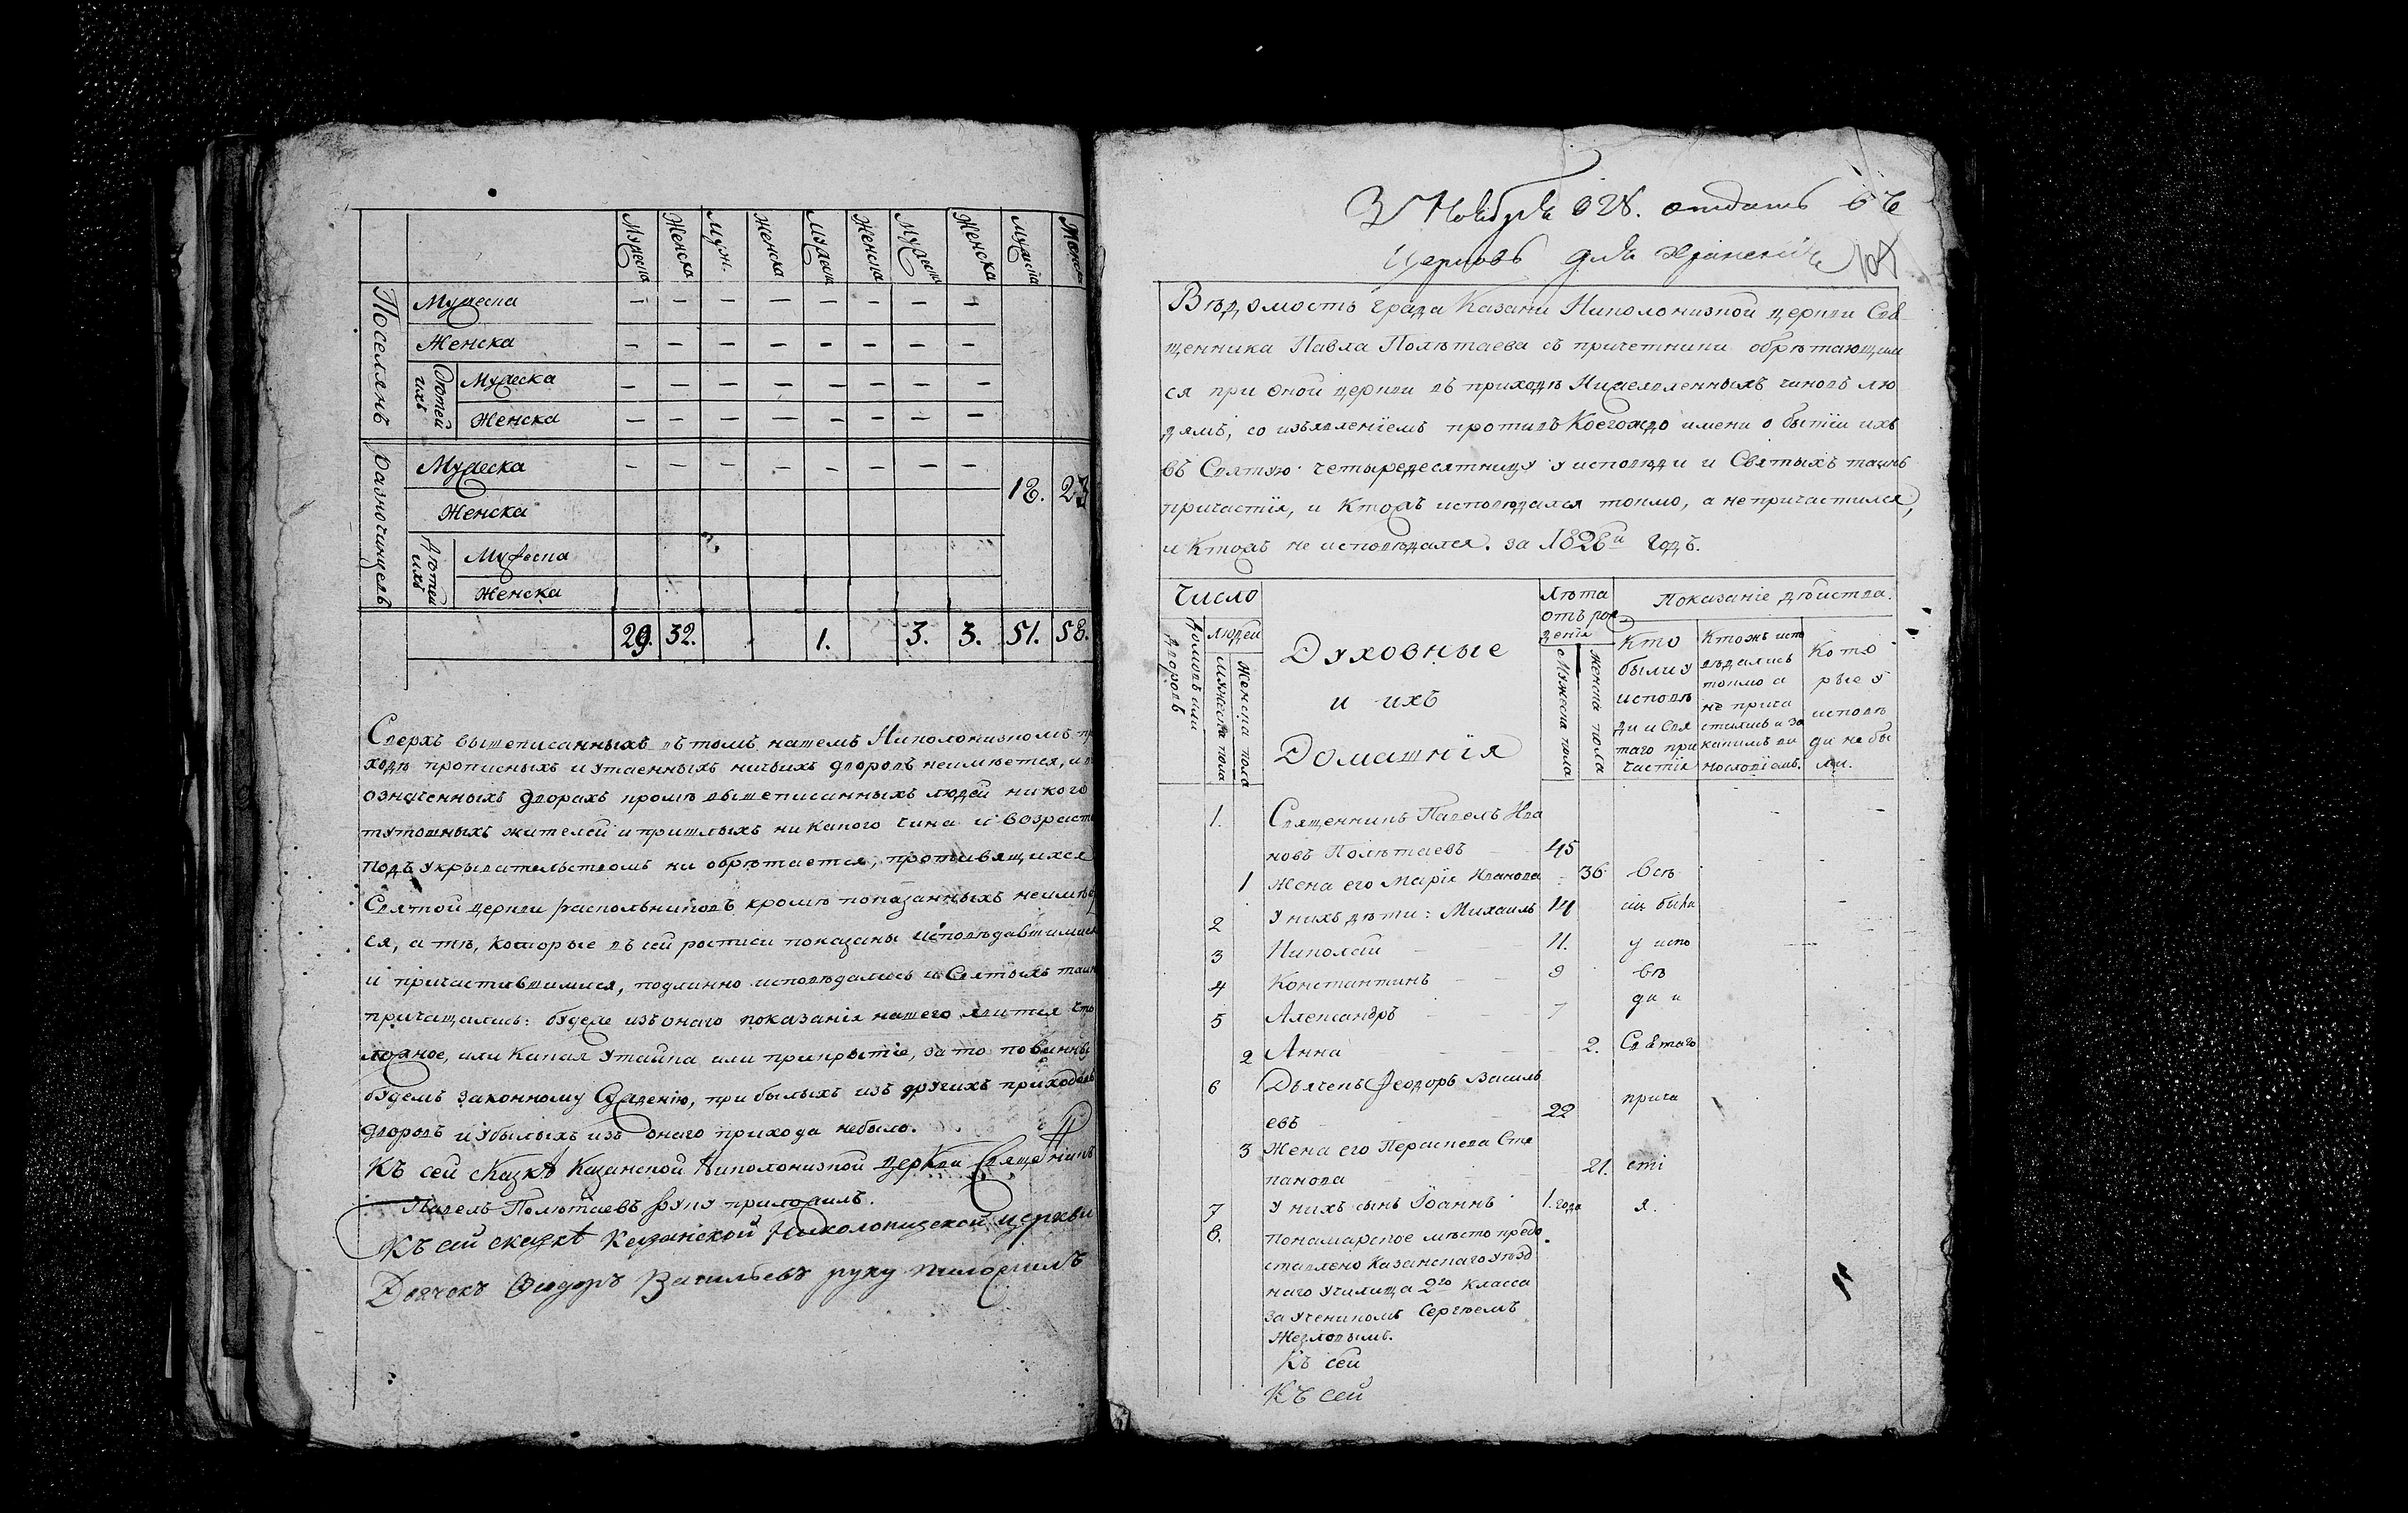 Мужеска Женска Муж. Женска Мужеска Женска Мужеска Женска Мужеска Женска
Поселянъ
Мужеска — — — — — — — — —
Женска — — — — — — — — —
Дѣтей ихъ
Мужеска — — — — — — — — —
Женска — — — — — — — — —
Разночинцевъ
Мужеска — — — — — — — — —
18.
Женска
Дѣтей ихъ
Мужеска
Женска
29. 32. 1. 3. 3. 51. 58.
Сверхъ вышеписанныхъ въ томъ нашемъ Николонизномъ при
ходѣ прописныхъ и утаенныхъ ничьихъ дворовъ неимѣется, и въ
означенныхъ дворахъ кромѣ вышеписанныхъ людей никого
тутошныхъ жителей и пришлыхъ никакого чина и возраста
подъ укрывательствомъ не обрѣтается, противящихся
Святой церкви раскольниковъ кромѣ показанныхъ неимѣет
ся, а тѣ, которые въ сей росписи показаны исповѣдавшимися
и причастившимися, подлинно исповѣдались и Святыхъ таинъ
причащались: буде же изъ онаго показанія нашего явится что
ложное, или какая утайка или прикрытіе, за то повинны
будемъ законному сужденію, прибылыхъ изъ другихъ приходовъ
дворовъ и убылыхъ изъ онаго прихода небыло.
Къ сей сказкѣ Казанской Николонизной церкви Священникъ
Павелъ Полѣтаевъ руку приложилъ.
Къ сей сказкѣ Казанской Николонизской церкви
Дьячекъ Федоръ Васильевъ руку приложилъ
3 Ноября 828. отдать въ
Церковь для храненія
Вѣдомость града Казани Николонизной церкви Свя
щенника Павла Полѣтаева съ причетники обрѣтающим
ся при оной церкви въ приходѣ Нижеявленныхъ чиновъ лю
дямъ, со изъявленіемъ противъ Коегождо имени о бытіи ихъ
въ Святую четыредесятницу у исповѣди и Святыхъ таинъ
причастія, и Ктожъ исповѣдался токмо, а непричастился,
и Ктожъ не исповѣдался. за 1828й годъ.
Число
Домовъ или дворовъ
людей
Мужеска пола
Женска пола
Духовные
и ихъ
Домашнія
Лѣта
отъ рож
денія
Мужеска пола
Женска пола
Показаніе дѣиства.
Кто
были у
исповѣ
ди и Свя
таго при
частія
Ктожъ испо
вѣдались
токмо а
не прича
стились и за
какимъ ви
нословіемъ.
Кото
рые у
исповѣ
ди не бы
ли.
1. Священникъ Павелъ Ива — —
новъ Полѣтаевъ 45
1 Жена его Марія Иванова 36 Всѣ
2 У нихъ дѣти: Михаилъ 14
3 Николай 11. у испо
4 Константинъ 9 вѣ
5 Александръ 7 ди и
2 Анна 2. Святаго
6 Дьячекъ Феодоръ Василь
евъ 22 прича
3 Жена его Параскева Сте
панова 21. сті
7 У нихъ сынъ Іоаннъ 1. года я.
8. Пономарское мѣсто предо
ставлено Казанскаго уѣзд
наго училища 2го класса
за ученикомъ Сергѣемъ
Жегловымъ.
Къ сей
Къ сей